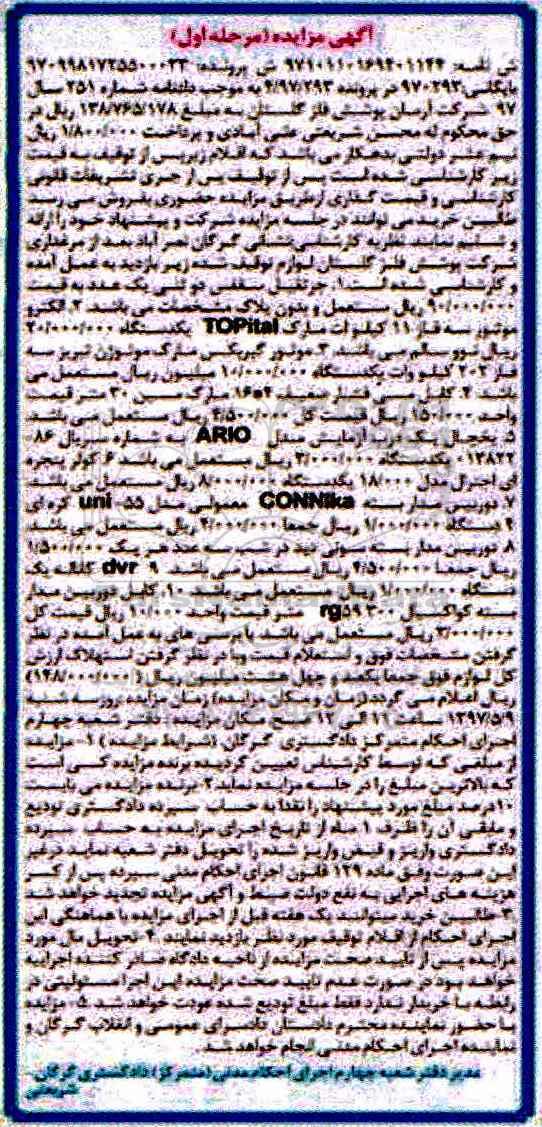 آگهی مزایده (مرحله اول)
ش ابلاغیه: ۹۷۱۰۱۱۰۱۶۹۳۰۱۱۴۴ ش پرونده: ۹۷۰۹۹۸۱۷۲۵۵۰۰۰۲۳
بایگانی: ۹۷۰۲۹۳ در پرونده ۴/۹۷/۲۹۳ به موجب دادنامه شماره ۲۵۱ سال
۹۷ شرکت آرمان پوشش فلز گلستان به مبلغ ۱۳۸/۷۶۵/۱۷۸ ریال در
حق محکوم له محسن شریعتی علی آبادی و پرداخت ۱/۸۰۰/۰۰۰ ریال
نیم عشر دولتی بدهکار می باشد که اقلام زیر پس از توقیف به قیمت
زیر کارشناسی شده است پس از توقیف پس از جری تشریفات قانونی
کارشناسی و قیمت گذاری از طریق مزایده حضوری بفروش می رسد
طالبین خرید می توانند در جلسه مزایده شرکت و پیشنهاد خود را ارائه
و نمایند نظریه کارشناسی نشانی گرگان نصر آباد بعد از مرغداری
شرکت پوشش فلز گلستان لوازم توقیف شده زیر بازدید به عمل آمده
و کارشناسی شده است ۱. جرثقیل سقفی دو تنی یک عدد به قیمت
۹۰/۰۰۰/۰۰۰ ریال مستعمل و بدون پلاک مشخصات می باشد ۲. الکترو
موتور سه فاز ۱۱ کیلو وات مارک TOPital یکدستگاه ۲۰/۰۰۰/۰۰۰
ریال نو و سالم می باشد ۳. موتور گیربکس مارک موتوژن تبریز سه
فاز ۲۰۲ کیلو وات یکدستگاه ۱۰/۰۰۰/۰۰۰ میلیون ریال مستعمل می
باشد ۴. کابل مسی فشار ضعیف ۴*۱۶ مارک ۳۰ متر قیمت
واحد ۱۵۰/۰۰۰ ریال قیمت کل ۴/۵۰۰/۰۰۰ ریال مستعمل می باشد
۵. یخچال یک درب آزمایش مدل ARIO به شماره سریال ۰۸۶
۰۱۳۸۲۲ یکدستگاه ۳/۰۰۰/۰۰۰ ریال مستعمل می باشد ۶. کولر پنجره
ای جنرال مدل ۱۸/۰۰۰ یکدستگاه ۸/۰۰۰/۰۰۰ ریال مستعمل می باشد
۷. دوربین مدار بسته CONNIka معمولی مدل ۵۵- uni کره ای
۴ دستگاه ۱/۰۰۰/۰۰۰ ریال جمعا ۴/۰۰۰/۰۰۰ ریال مستعمل می باشد
۸. دوربین مدار بسته سونی دید در شب سه عدد هر یک ۱/۵۰۰/۰۰۰
ریال جمعا ۴/۵۰۰/۰۰۰ ریال مستعمل می باشد ۹. dvr ۴ کاناله یک
دستگاه ۱/۰۰۰/۰۰۰ ریال مستعمل می باشد ۱۰. کابل دوربین مدار
بسته کواکسیال rg۵۹ ۳۰۰ متر قیمت واحد ۱۰/۰۰۰ ریال قیمت کل
۳/۰۰۰/۰۰۰ ریال مستعمل می باشد. با بررسی های به عمل آمده در نظر
گرفتن مشخصات فوق و استعلام قیمت و با در نظر گرفتن استهلاک ارزش
کل لوازم فوق جمعا یکصد و چهل هشت میلیون ریال (۱۴۸/۰۰۰/۰۰۰)
ریال اعلام می گردد (زمان و مکان مزایده) زمان مزایده روز سه شنبه
۱۳۹۷/۵/۹ ساعت ۱۱ الی ۱۲ صبح مکان مزایده: دفتر شعبه چهارم
اجرای احکام متمرکز دادگستری گرگان (شرایط مزایده) ۱. مزایده
از مبلغی که توسط کارشناس تعیین گردیده برنده مزایده کسی است
که بالاترین مبلغ را در جلسه مزایده نماید ۲. برنده مزایده می بایست
۱۰ درصد مبلغ مورد پیشنهاد را نقدا به حساب سپرده دادگستری تودیع
و مابقی آن را ظرف ۱ ماه از تاریخ اجرای مزایده به حساب سپرده
دادگستری واریز و قبض واریز شده را تحویل دفتر شعبه نماید در غیر
این صورت وفق ماده ۱۲۹ قانون اجرای احکام مدنی سپرده پس از کسر
هزینه های اجرایی به نفع دولت ضبط و آگهی مزایده تجدید خواهد شد
۳. طالبین خرید میتوانند یک هفته قبل از اجرای مزایده با هماهنگی این
اجرای احکام از اقلام توقیف مورد نظر بازدید نمایند ۴. تحویل مال مورد
مزایده پس از تایید صحت مزایده از ناحیه دادگاه صادر کننده اجرائیه
خواهد بود در صورت عدم تایید صحت مزایده این اجرا مسولیتی در
رابطه با خریدار ندارد فقط مبلغ تودیع شده عودت خواهد شد ۵. مزایده
با حضور نماینده محترم دادستان دادسرای عمومی و انقلاب گرگان و
نماینده اجرای احکام مدنی انجام خواهد شد.
مدیر دفتر شعبه چهارم اجرای احکام مدنی (متمرکز) دادگستری گرگان-